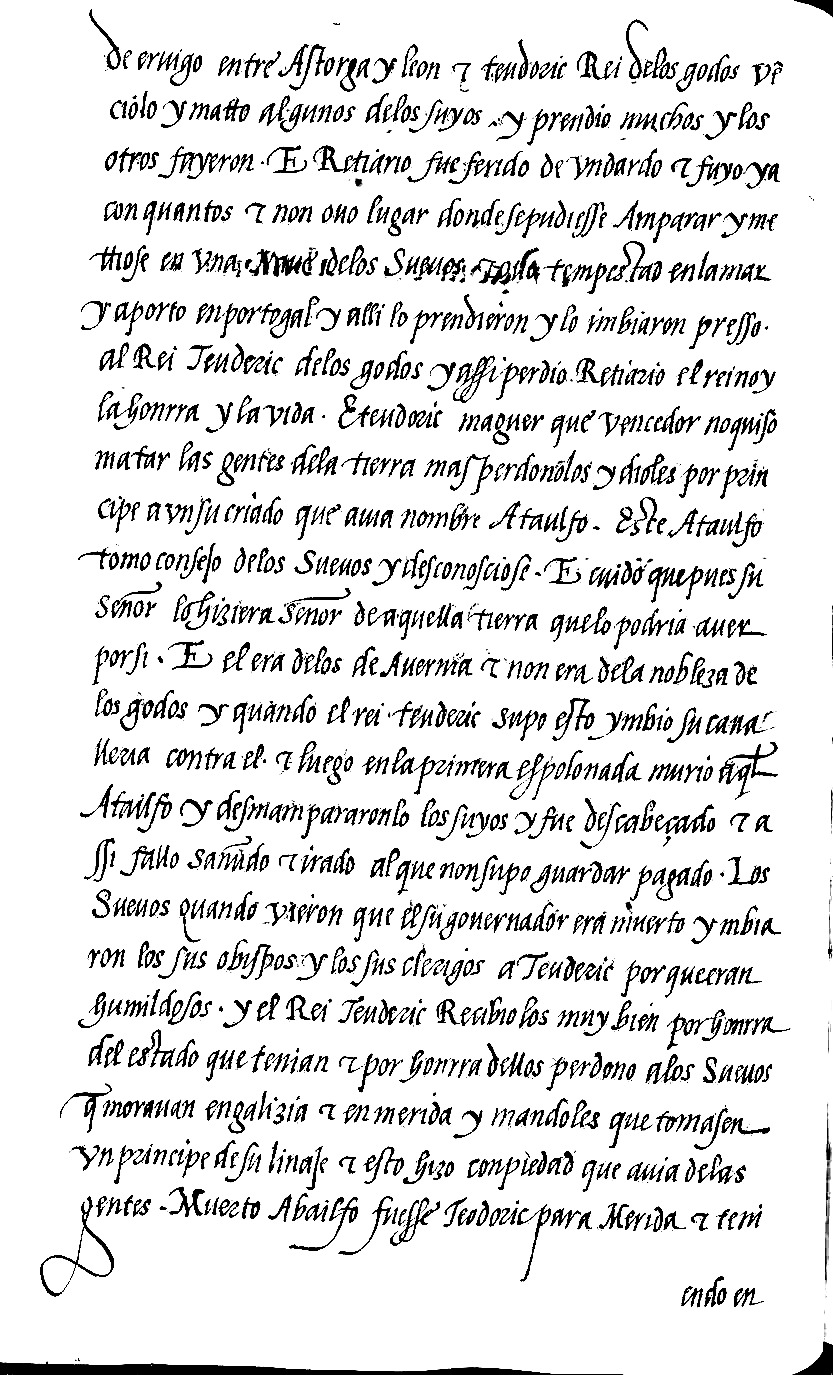 de eruigo entre Astorga y leon τ teudoric Rei delos godos vē
ciólo y matto algunos delos suyos . y prendio muchos y los
otros fuyeron . E Retiario fue ferido de vn dardo τ fuyo ya
con quantos τ non ouo lugar donde se pudiesse Amparar y me
ttiose en vna Naue delos Sueuos tempestad en la mar
y aporto en portogal y alli lo prendieron y lo imbiaron presso .
al Rei Teuderic delos godos y assi perdio Retiario el reino y
la honrra y la vida . E teudoric maguer que vencedor no quiso
matar las gentes dela tierra mas perdonólos y dioles por prin
cipe a vn su criado que auia nombre Ataulfo . Este Ataulfo
tomo consejo delos Sueuos y desconosciose . E cuidó que pues su
Señor lo hiziera Señor de aquella tierra que lo podria auer
por si . E el era delos de Auernia τ non era dela nobleza de
los godos y quando el rei teuderic supo esto ymbio su caua
lleria contra el . τ luego en la primera espolonada murio aql
Atailfo y desmampararonlo los suyos y fue descabeçado τ a
ssi fallo sañudo τ irado al que non supo guardar pagado . Los
Sueuos quando vieron que el su gouernador era muerto ymbia
ron los sus obispos y los sus clerigos a Teuderic por que eran
humildosos . y el Rei Teuderic Recibio los muy bien por honrra
del estado que tenian τ por honrra dellos perdono alos Sueuos
q̃ morauan en galizia τ en merida y mandoles que tomasen
vn principe de su linaje τ esto hizo con piedad que auia delas
gentes . Muerto Abailfo fuesse Teodoric para Merida τ teni
endo en